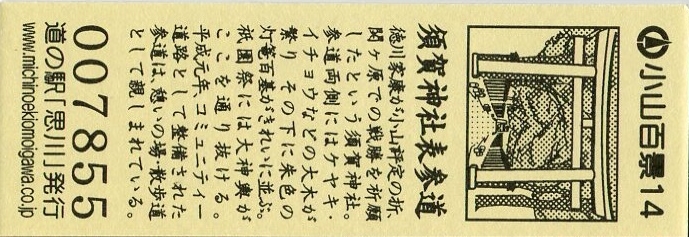 小山百景14
須賀神社表参道
徳川家康が小山評定の折、
関ケ原での戦勝を祈願
したという須賀神社。
参道両側にはケヤキ・
イチョウなどの大木が
繁り、その下に朱色の
灯篭百基がきれいに並ぶ。
祇園祭には大神輿が
ここを通り抜ける。
平成元年、コミュニティー
道路として整備された
参道は、憩いの場、散歩道
として親しまれている。
007855
道の駅「思川」発行
www.michinoekiomoigawa.co.jp